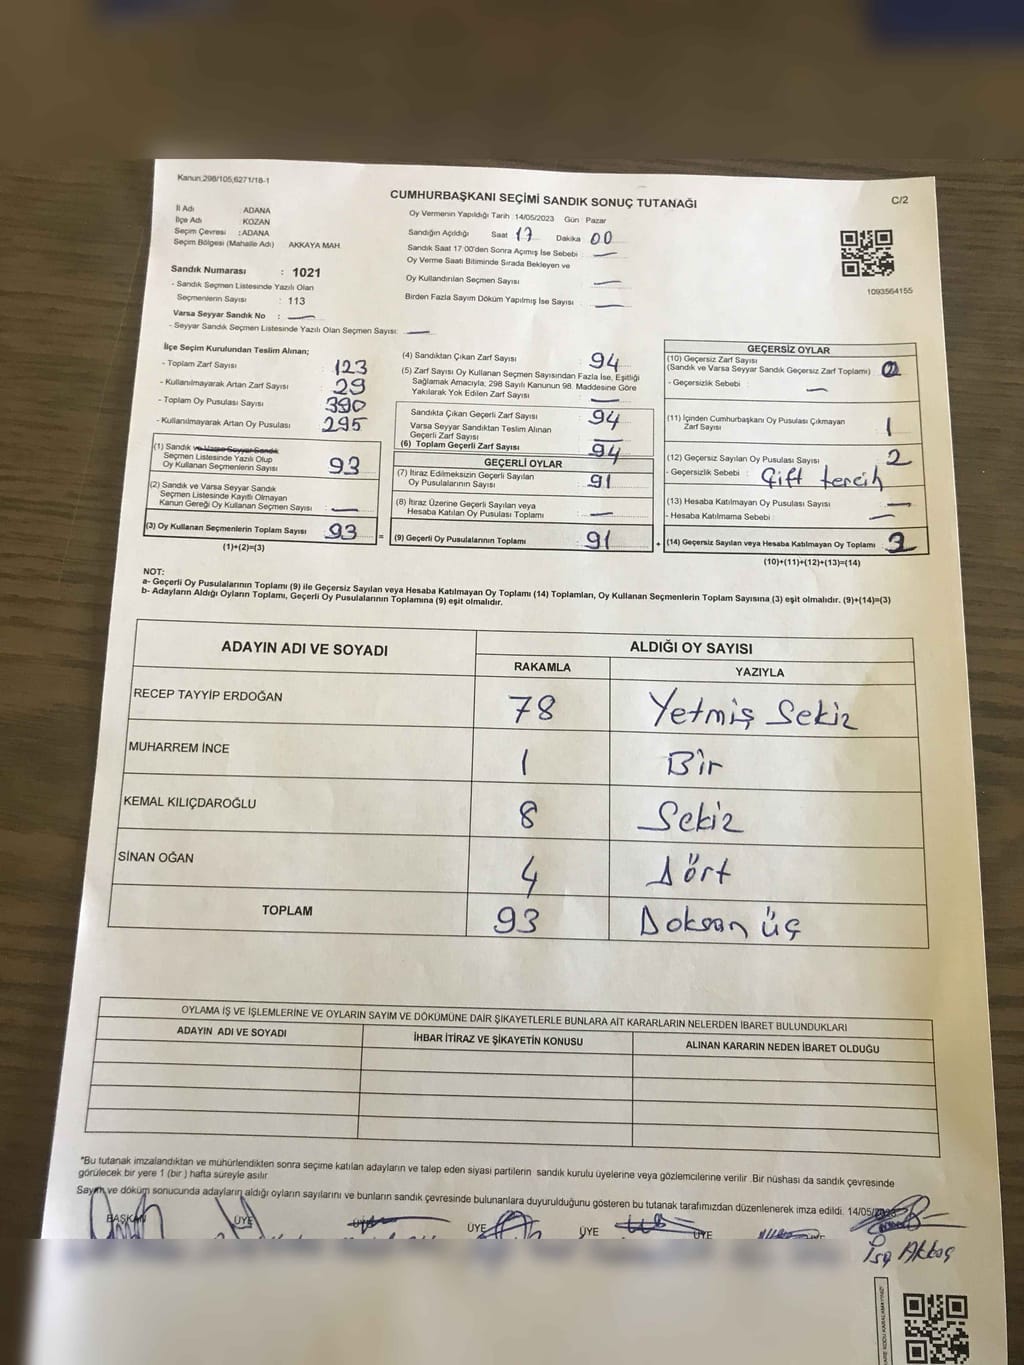 Kanun:298/105,6271/18-1
CUMHURBAŞKANI SEÇİMİ SANDIK SONUÇ TUTANAĞI
C/2
İl Adı : ADANA
İlçe Adı : KOZAN
Seçim Çevresi : ADANA
Seçim Bölgesi (Mahalle Adı) AKKAYA MAH
Sandık Numarası : 1021
- Sandık Seçmen Listesinde Yazılı Olan
Seçmenlerin Sayısı : 113
Varsa Seyyar Sandık No : —
- Seyyar Sandık Seçmen Listesinde Yazılı Olan Seçmen Sayısı: —
Oy Vermenin Yapıldığı Tarih :14/05/2023 Gün : Pazar
Sandığın Açıldığı Saat 17 Dakika 00
Sandık Saat 17:00'den Sonra Açımış İse Sebebi —
Oy Verme Saati Bitiminde Sırada Bekleyen ve
Oy Kullandırılan Seçmen Sayısı —
Birden Fazla Sayım Döküm Yapılmış İse Sayısı —
1093564155
İlçe Seçim Kurulundan Teslim Alınan;
- Toplam Zarf Sayısı : 123
- Kullanılmayarak Artan Zarf Sayısı : 29
- Toplam Oy Pusulası Sayısı : 390
- Kullanılmayarak Artan Oy Pusulası : 295
(1) Sandık ve Varsa Seyyar Sandık
Seçmen Listesinde Yazılı Olup
Oy Kullanan Seçmenlerin Sayısı : 93
(2) Sandık ve Varsa Seyyar Sandık
Seçmen Listesinde Kayıtlı Olmayan
Kanun Gereği Oy Kullanan Seçmen Sayısı : —
(3) Oy Kullanan Seçmenlerin Toplam Sayısı : 93
(1)+(2)=(3)
(4) Sandıktan Çıkan Zarf Sayısı : 94
(5) Zarf Sayısı Oy Kullanan Seçmen Sayısından Fazla İse, Eşitliği
Sağlamak Amacıyla, 298 Sayılı Kanunun 98. Maddesine Göre
Yakılarak Yok Edilen Zarf Sayısı : —
Sandıkta Çıkan Geçerli Zarf Sayısı : 94
Varsa Seyyar Sandıktan Teslim Alınan
Geçerli Zarf Sayısı : —
(6) Toplam Geçerli Zarf Sayısı : 94
GEÇERLİ OYLAR
(7) İtiraz Edilmeksizin Geçerli Sayılan
Oy Pusulalarının Sayısı : 91
(8) İtiraz Üzerine Geçerli Sayılan veya
Hesaba Katılan Oy Pusulası Toplamı : —
= (9) Geçerli Oy Pusulalarının Toplamı : 91
GEÇERSİZ OYLAR
(10) Geçersiz Zarf Sayısı
(Sandık ve Varsa Seyyar Sandık Geçersiz Zarf Toplamı) :
- Geçersizlik Sebebi : —
(11) İçinden Cumhurbaşkanı Oy Pusulası Çıkmayan
Zarf Sayısı : 1
(12) Geçersiz Sayılan Oy Pusulası Sayısı : 2
- Geçersizlik Sebebi : Çift tercih
(13) Hesaba Katılmayan Oy Pusulası Sayısı : —
- Hesaba Katılmama Sebebi : —
+ (14) Geçersiz Sayılan veya Hesaba Katılmayan Oy Toplamı :
(10)+(11)+(12)+(13)=(14)
NOT:
a- Geçerli Oy Pusulalarının Toplamı (9) ile Geçersiz Sayılan veya Hesaba Katılmayan Oy Toplamı (14) Toplamları, Oy Kullanan Seçmenlerin Toplam Sayısına (3) eşit olmalıdır. (9)+(14)=(3)
b- Adayların Aldığı Oyların Toplamı, Geçerli Oy Pusulalarının Toplamına (9) eşit olmalıdır.
ADAYIN ADI VE SOYADI ALDIĞI OY SAYISI
RAKAMLA YAZIYLA
RECEP TAYYİP ERDOĞAN 78 Yetmiş Sekiz
MUHARREM İNCE 1 Bir
KEMAL KILIÇDAROĞLU 8 Sekiz
SİNAN OĞAN 4 Dört
TOPLAM 93 Doksan üç
OYLAMA İŞ VE İŞLEMLERİNE VE OYLARIN SAYIM VE DÖKÜMÜNE DAİR ŞİKAYETLERLE BUNLARA AİT KARARLARIN NELERDEN İBARET BULUNDUKLARI
ADAYIN ADI VE SOYADI İHBAR İTİRAZ VE ŞİKAYETİN KONUSU ALINAN KARARIN NEDEN İBARET OLDUĞU
*Bu tutanak imzalandıktan ve mühürlendikten sonra seçime katılan adayların ve talep eden siyasi partilerin sandık kurulu üyelerine veya gözlemcilerine verilir .Bir nüshası da sandık çevresinde
görülecek bir yere 1 (bir ) hafta süreyle asılır
Sayım ve döküm sonucunda adayların aldığı oyların sayılarını ve bunların sandık çevresinde bulunanlara duyurulduğunu gösteren bu tutanak tarafımızdan düzenlenerek imza edildi. 14/05/2023
BAŞKAN ÜYE ÜYE ÜYE ÜYE
İsa Akkoç